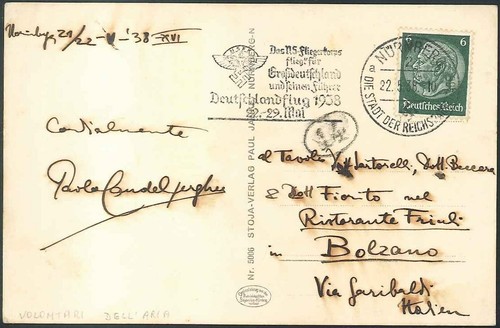 Nürnberg, 21/22-V-'38-XVI
Das NS-Fliegerkorps
fliegt für
Großdeutschland
und seinen Führer
Deutschlandflug 1938
22.-29. Mai
NÜRNBERG
a
22. 5. 38
DIE STADT DER REICHS
6 6
Deutsches Reich
44
Cordialmente
al Tavolo Dott Sartorelli, Dott Beccara
& Dott Fiorito nel
Ristorante Friuli
in Bolzano
Via Garibaldi
Italien
Nr. 5006 STOJA-VERLAG PAUL JA NÜRNBERG-N
VOLONTARI DELL'ARIA